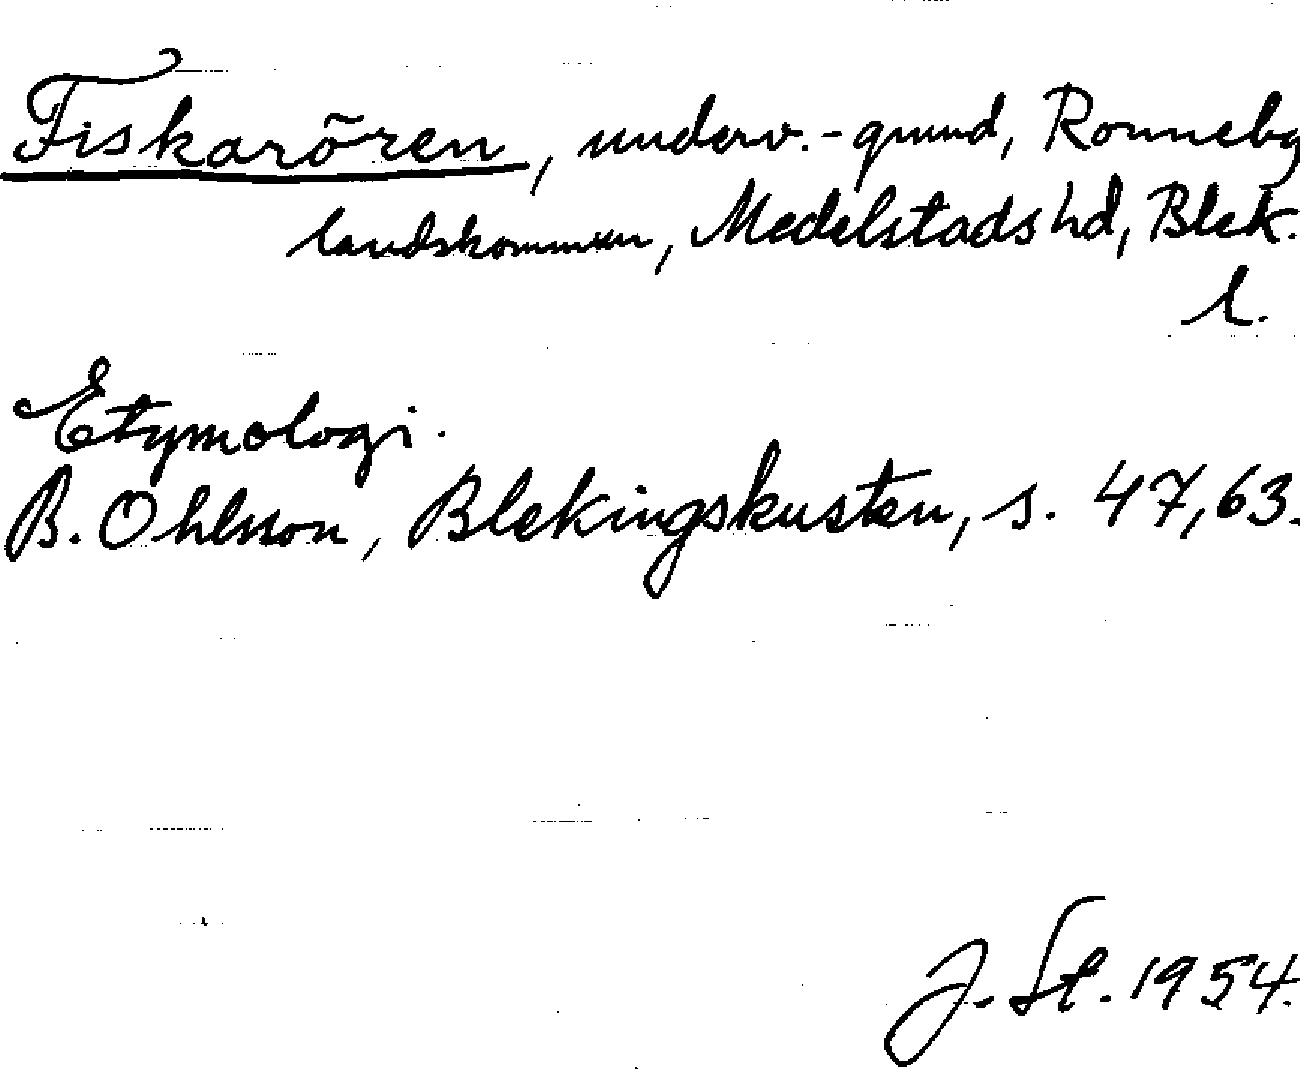 Fiskarören, underv.-grund, Ronneby
landskommun, Medelstads hd, Blek.
l.
Etymologi.
B. Ohlsson, Blekingskusten, s. 47, 63.
J. St. 1954.